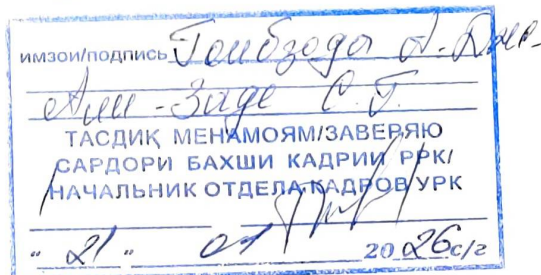 имзои/подпись Гоибзода А. Дже-
Али-Заде С. Г.
ТАСДИҚ МЕНАМОЯМ/ЗАВЕРЯЮ
САРДОРИ БАХШИ КАДРИИ РРК/
НАЧАЛЬНИК ОТДЕЛА КАДРОВ УРК
"21" 01 2026 с/г